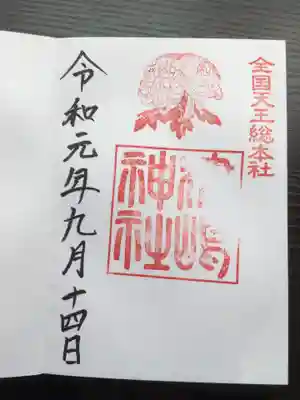 全国天王総本社
津嶋
神社
令和元年九月十四日